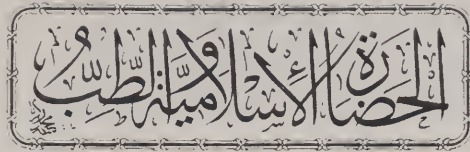 الحَضَارَةُ الإِسْلَامِيَّةُ وَالطِّبُّ